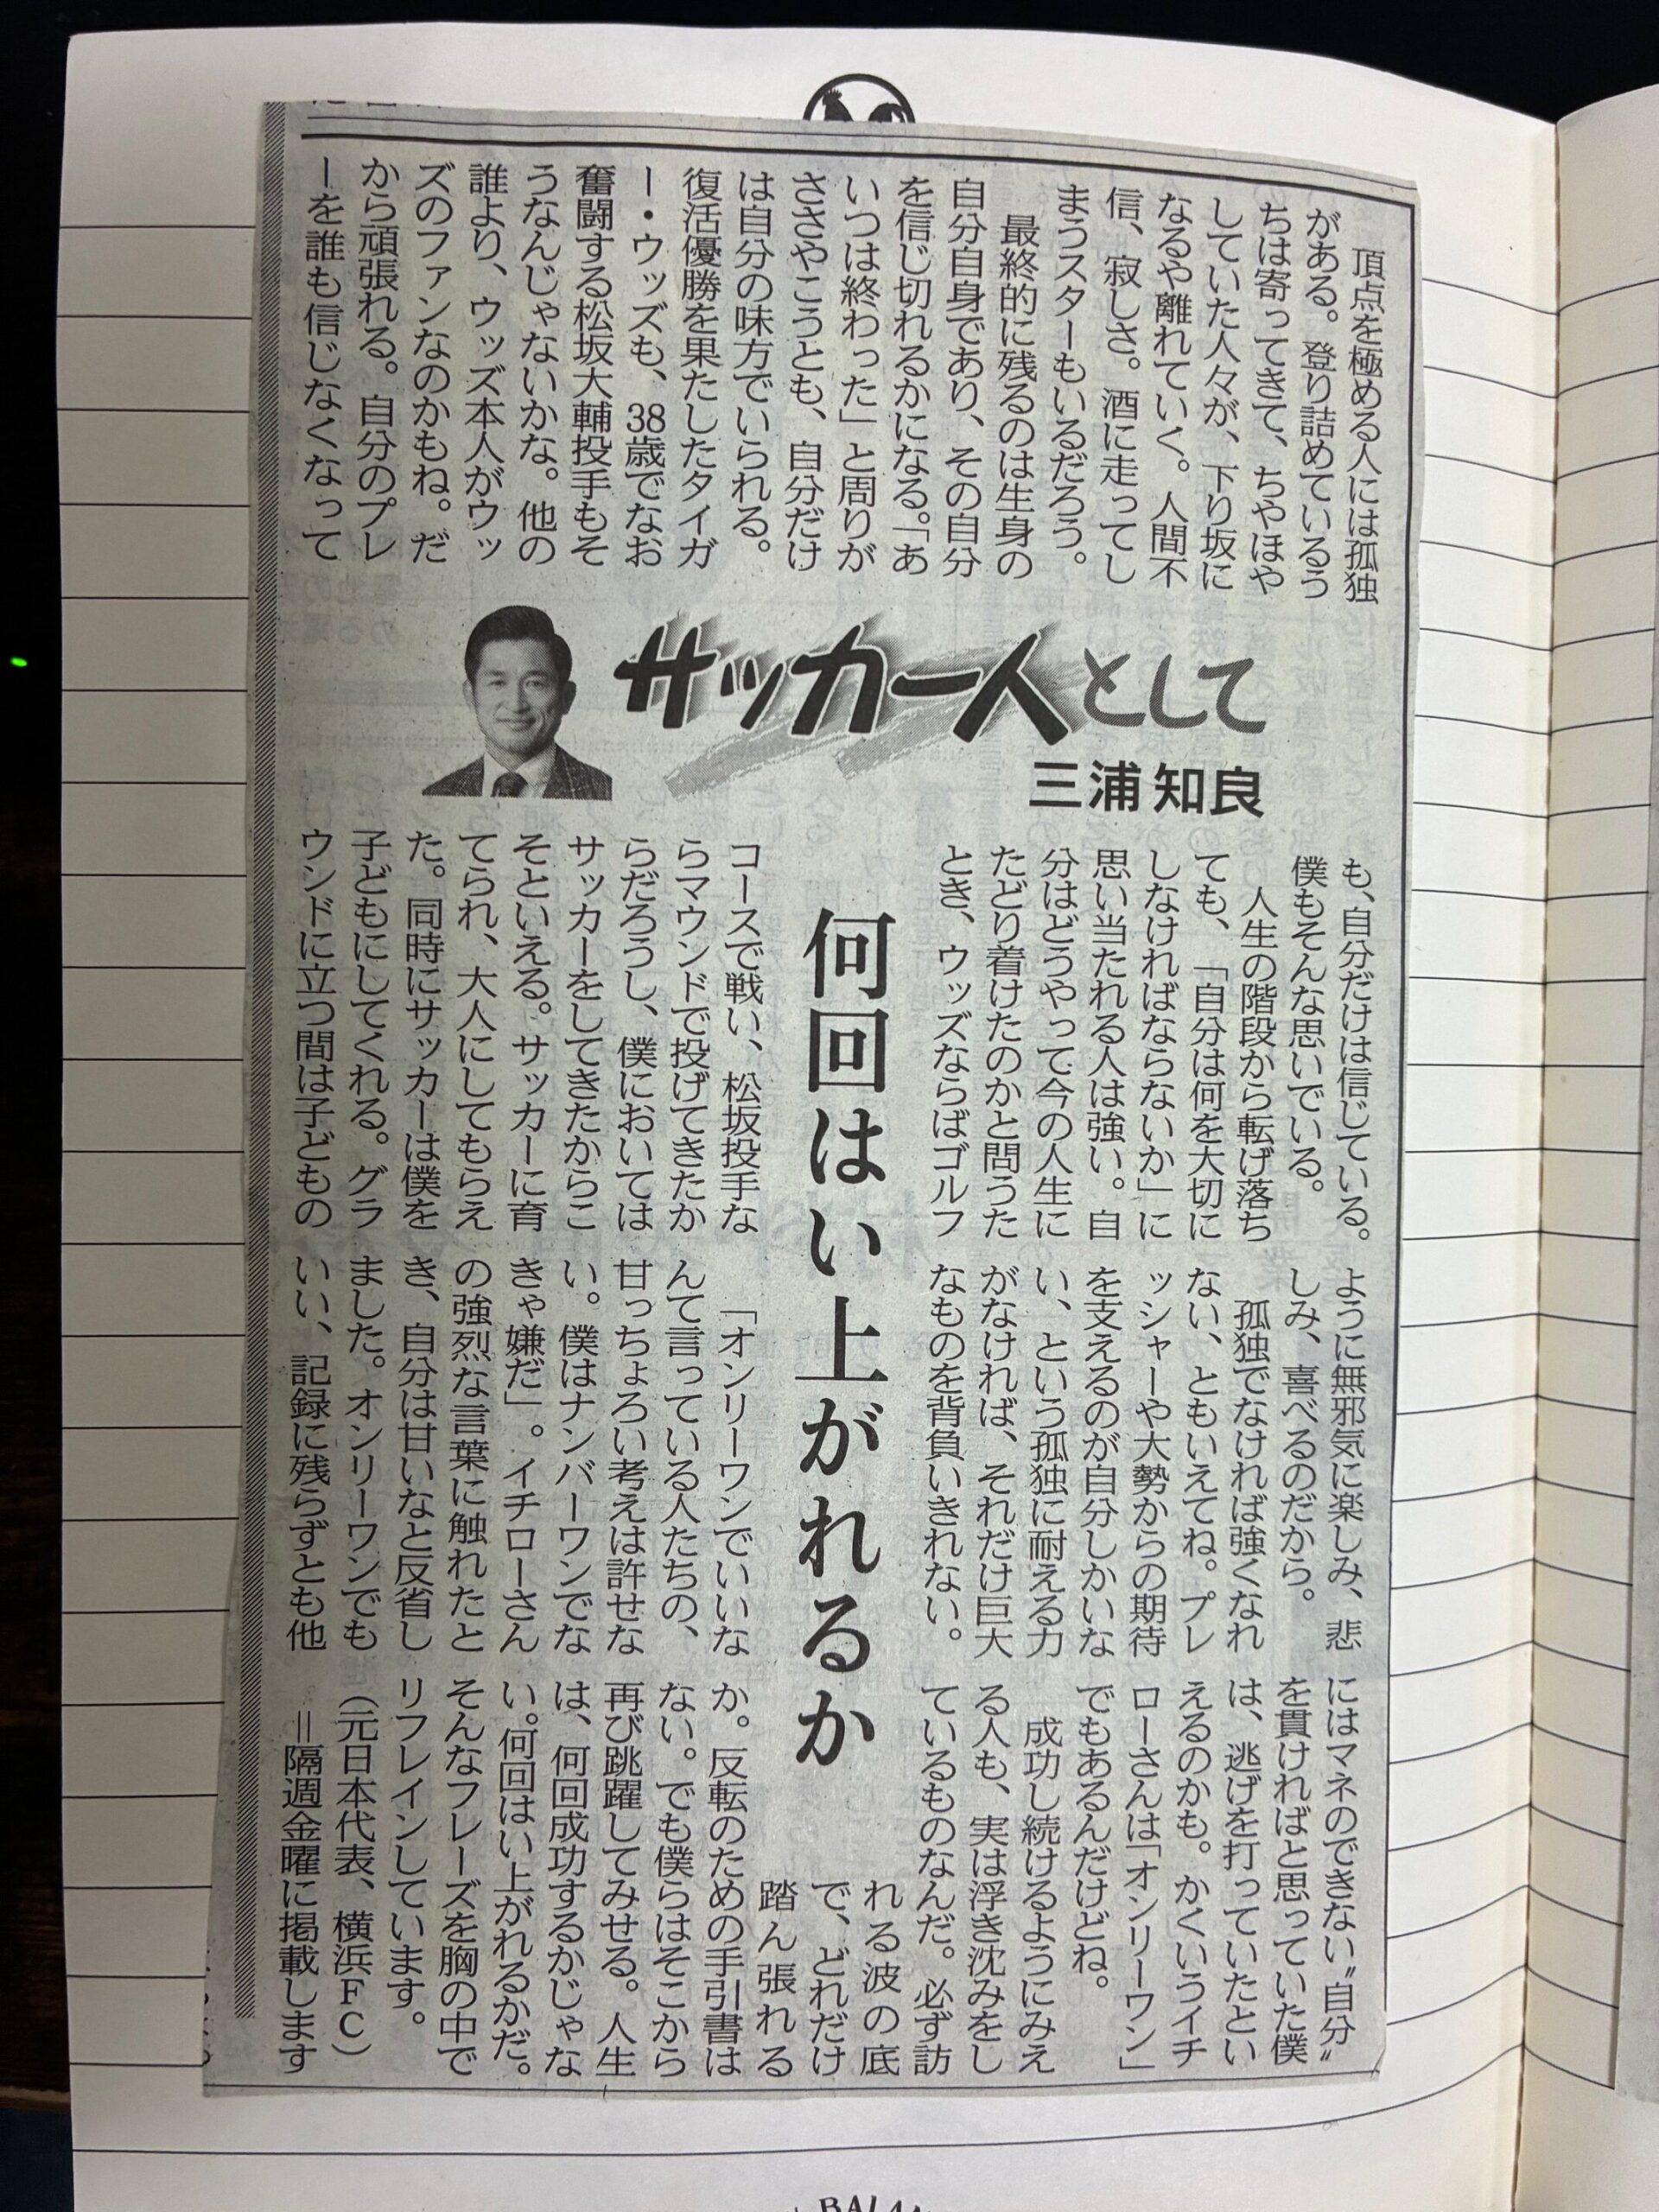 サッカー人として
三浦 知良
何回はい上がれるか
頂点を極める人には孤独
がある。登り詰めているう
ちは寄ってきて、ちやほや
していた人々が、下り坂に
なるや離れていく。人間不
信、寂しさ。酒に走ってし
まうスターもいるだろう。
最終的に残るのは生身の
自分自身であり、その自分
を信じ切れるかになる。「あ
いつは終わった」と周りが
ささやこうとも、自分だけ
は自分の味方でいられる。
復活優勝を果たしたタイガ
ー・ウッズも、38歳でなお
奮闘する松坂大輔投手もそ
うなんじゃないかな。他の
誰より、ウッズ本人がウッ
ズのファンなのかもね。だ
から頑張れる。自分のプレ
ーを誰も信じなくなって
も、自分だけは信じている。
僕もそんな思いでいる。
人生の階段から転げ落ち
ても、「自分は何を大切に
しなければならないか」に
思い当たれる人は強い。自
分はどうやって今の人生に
たどり着けたのかと問うた
とき、ウッズならばゴルフ
コースで戦い、松坂投手な
らマウンドで投げてきたか
らだろうし、僕においては
サッカーをしてきたからこ
そといえる。サッカーに育
てられ、大人にしてもらえ
た。同時にサッカーは僕を
子どもにしてくれる。グラ
ウンドに立つ間は子どもの
ように無邪気に楽しみ、悲
しみ、喜べるのだから。
孤独でなければ強くなれ
ない、ともいえてね。プレ
ッシャーや大勢からの期待
を支えるのが自分しかいな
い、という孤独に耐える力
がなければ、それだけ巨大
なものを背負いきれない。
「オンリーワンでいいな
んて言っている人たちの、
甘っちょろい考えは許せな
い。僕はナンバーワンでな
きゃ嫌だ」。イチローさん
の強烈な言葉に触れたと
き、自分は甘いなと反省し
ました。オンリーワンでも
いい、記録に残らずとも他
にはマネのできない〝自分〟
を貫ければと思っていた僕
は、逃げを打っていたとい
えるのかも。かくいうイチ
ローさんは「オンリーワン」
でもあるんだけどね。
成功し続けるようにみえ
る人も、実は浮き沈みをし
ているものなんだ。必ず訪
れる波の底
で、どれだけ
踏ん張れる
か。反転のための手引書は
ない。でも僕らはそこから
再び跳躍してみせる。人生
は、何回成功するかじゃな
い。何回はい上がれるかだ。
そんなフレーズを胸の中で
リフレインしています。
（元日本代表、横浜ＦＣ）
＝隔週金曜に掲載します